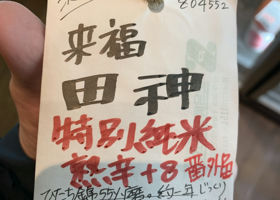 204552
来福
田神
特別純米
熟辛+8 番外色
ひたち錦55%磨。約一年じっくり